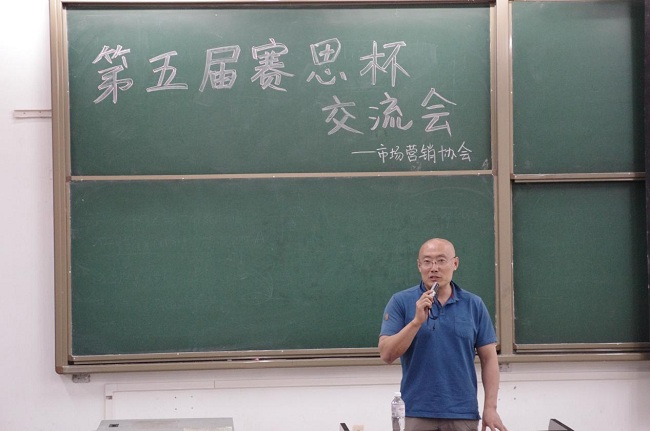 第五届赛思杯
交流会
——市场营销协会